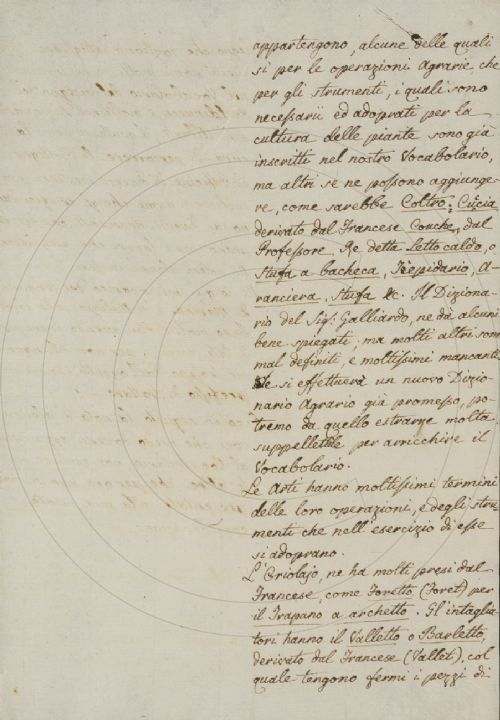 appartengono, alcune delle quali
si per le operazioni Agrarie che
per gli strumenti, i quali sono
necessarii ed adoprati per la
cultura delle piante sono già
inscritti nel nostro Vocabolario,
ma altri se ne possono aggiunge-
re, come sarebbe Coltro; Cuccia
derivato dal Francese Couche, dal
Professore Re detta Letto caldo, o
Stufa a bacheca, Tepidario, A-
ranciera, Stufa &c. Il Diziona-
rio del Sig: Galliardo, ne dà alcuni
bene spiegati; ma molti altri sono
mal definiti, e moltissimi mancanti
Se si effettuerà un nuovo Dizio-
nario Agrario già promesso, po-
tremo da quello estrarne molta
suppellettile per arricchire il
Vocabolario.
Le Arti hanno moltissimi termini
delle loro operazioni, e degli stru-
menti che nell'esercizio di esse
si adoprano.
L'Oriolajo, ne ha molti presi dal
Francese, come Foretto (Foret) per
il Trapano a archetto. Il intaglia-
tori hanno il Valletto o Barletto,
derivato dal Francese (Vallet), col
quale tengono fermi i pezzi di